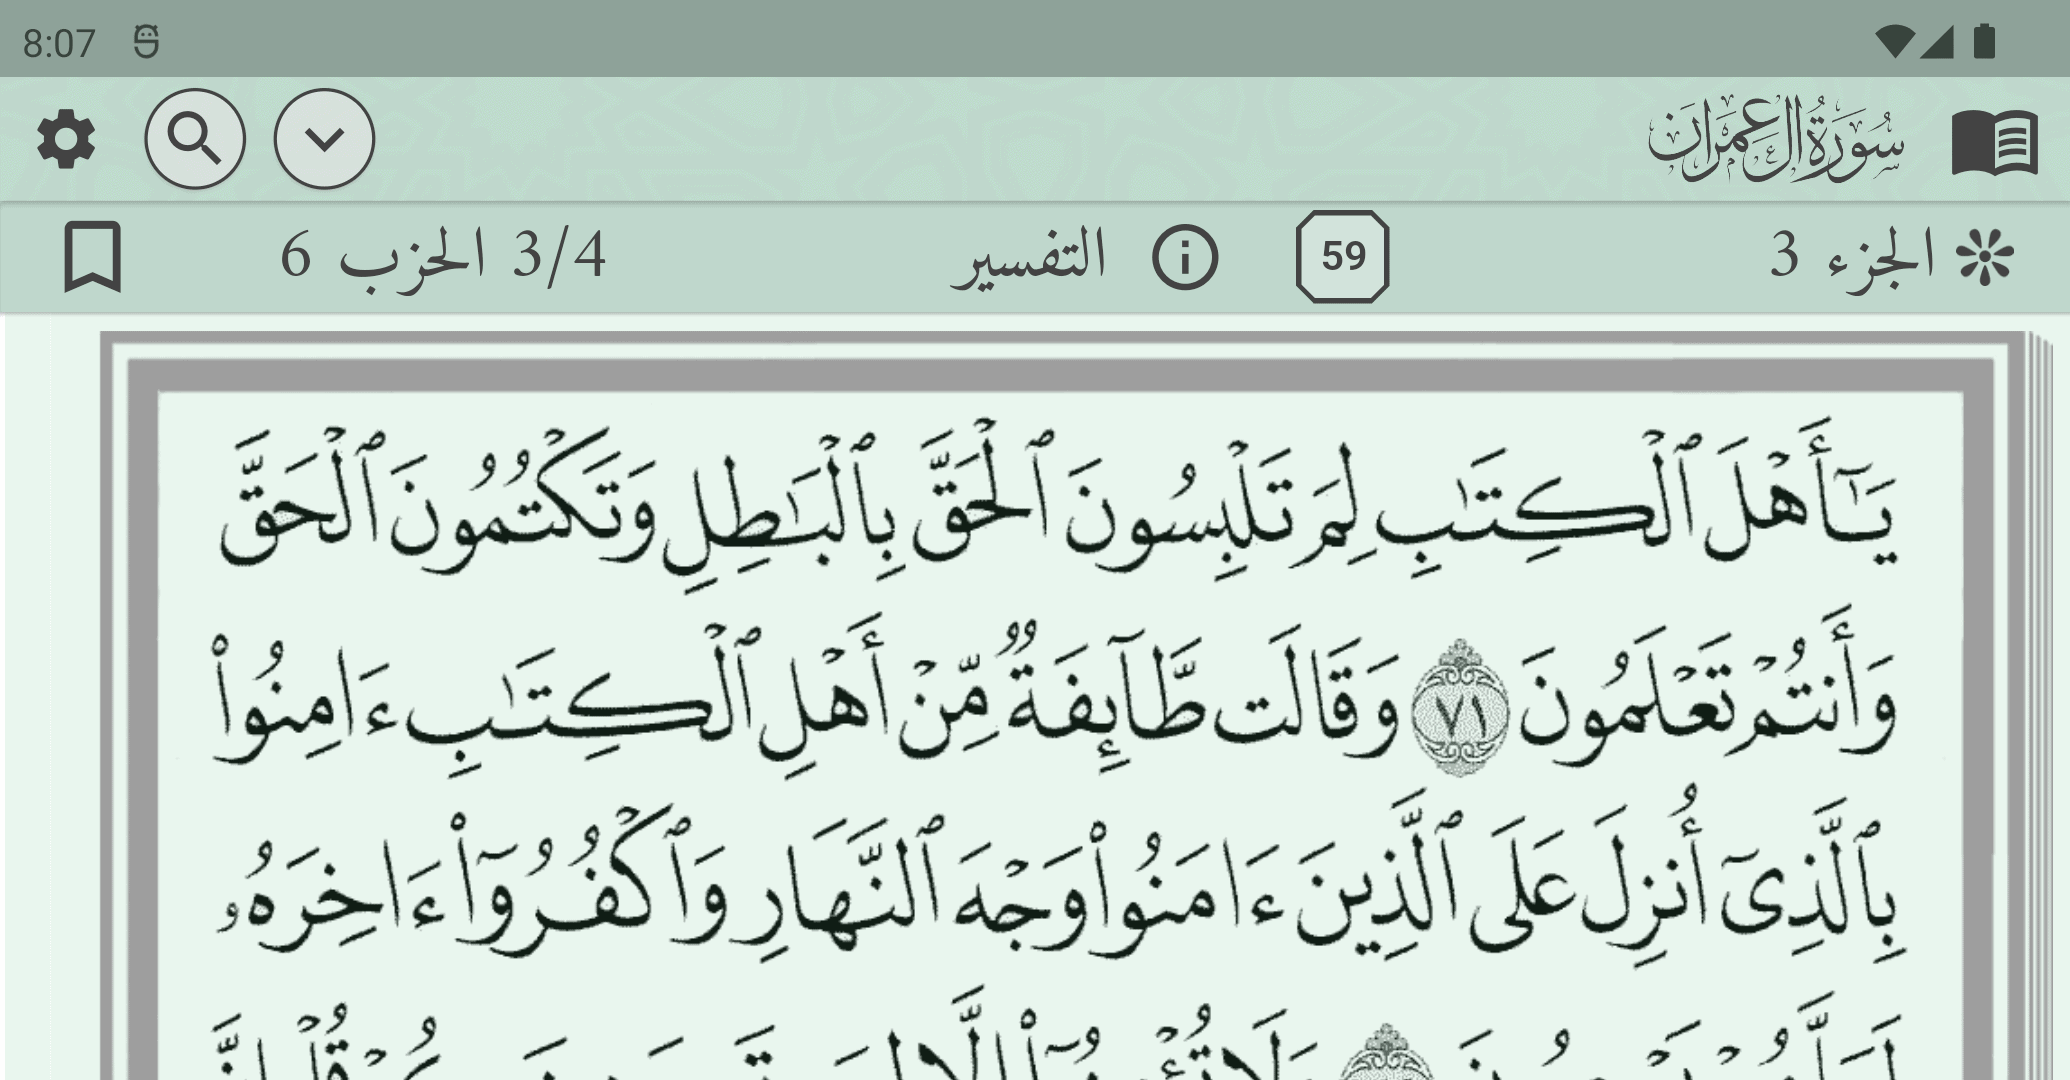 8:07
سُورَةُ آلِ عِمْرَان
الجزء 3
59
التفسير
3/4 الحزب 6
يَـٰٓأَهْلَ ٱلْكِتَـٰبِ لِمَ تَلْبِسُونَ ٱلْحَقَّ بِٱلْبَـٰطِلِ وَتَكْتُمُونَ ٱلْحَقَّ
وَأَنتُمْ تَعْلَمُونَ ٧١ وَقَالَت طَّآئِفَةٌ مِّنْ أَهْلِ ٱلْكِتَـٰبِ ءَامِنُوا۟
بِٱلَّذِىٓ أُنزِلَ عَلَى ٱلَّذِينَ ءَامَنُوا۟ وَجْهَ ٱلنَّهَارِ وَٱكْفُرُوٓا۟ ءَاخِرَهُۥ